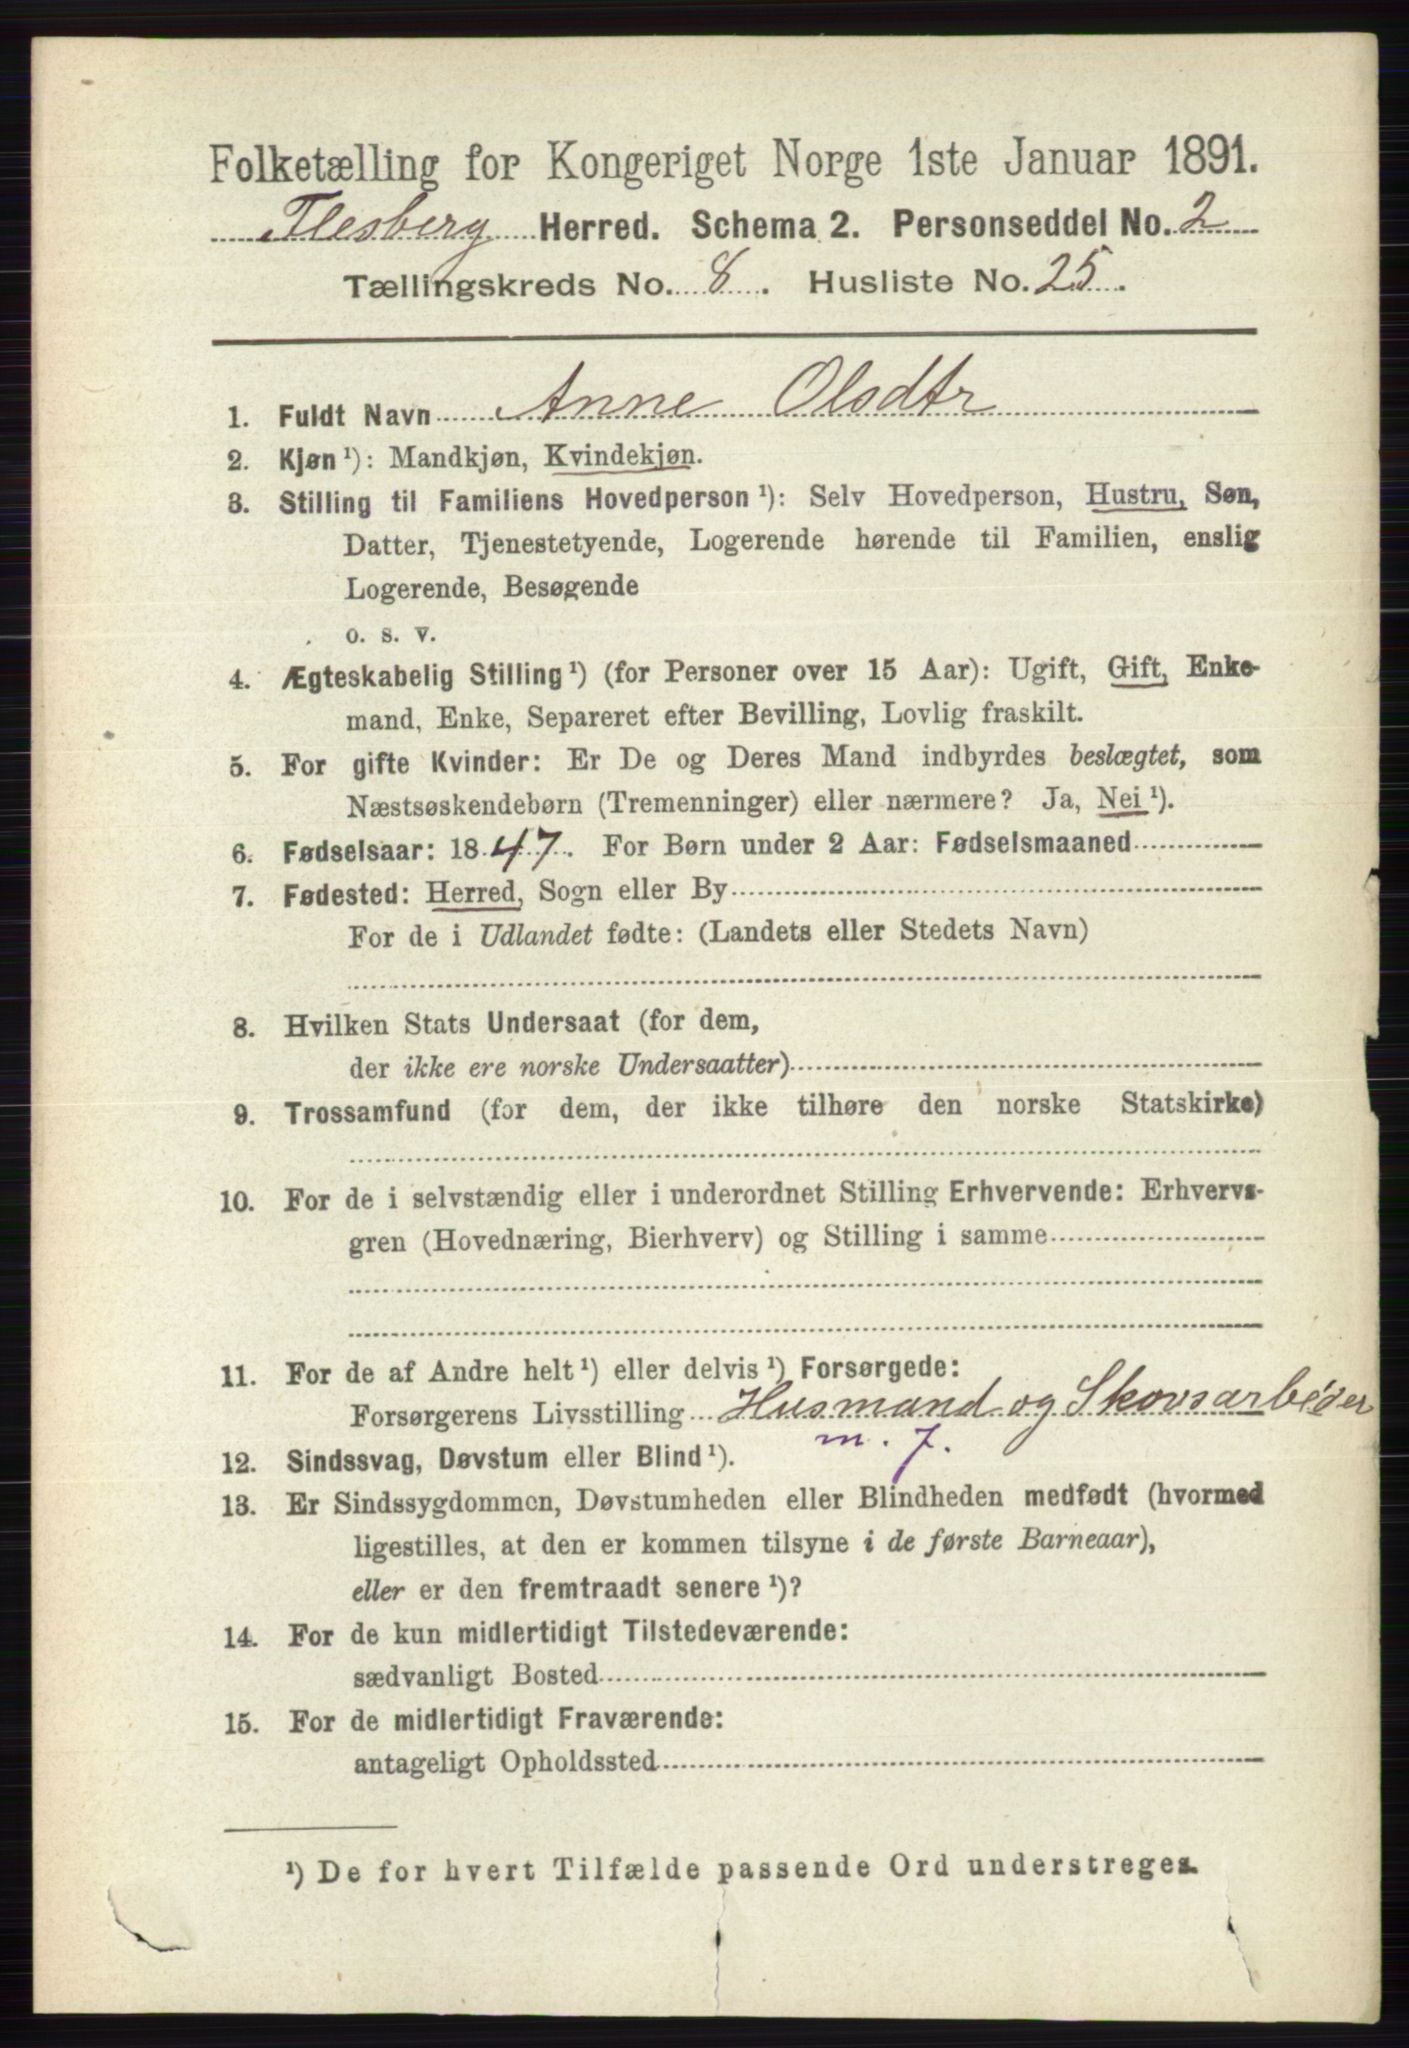 Folketælling for Kongeriget Norge 1ste Januar 1891.
Flesberg Herred. Schema 2. Personseddel No. 2
Tællingskreds No. 8. Husliste No. 25.
1. Fuldt Navn Anne Olsdtr
2. Kjøn ¹): Mandkjøn, Kvindekjøn.
3. Stilling til Familiens Hovedperson ¹): Selv Hovedperson, Hustru, Søn,
Datter, Tjenestetyende, Logerende hørende til Familien, enslig
Logerende, Besøgende
o. s. v.
4. Ægteskabelig Stilling ¹) (for Personer over 15 Aar): Ugift, Gift, Enke-
mand, Enke, Separeret efter Bevilling, Lovlig fraskilt.
5. For gifte Kvinder: Er De og Deres Mand indbyrdes beslægtet, som
Næstsøskendebørn (Tremenninger) eller nærmere? Ja, Nei ¹).
6. Fødselsaar: 1847. For Børn under 2 Aar: Fødselsmaaned
7. Fødested: Herred, Sogn eller By
For de i Udlandet fødte: (Landets eller Stedets Navn)
8. Hvilken Stats Undersaat (for dem,
der ikke ere norske Undersaatter)
9. Trossamfund (for dem, der ikke tilhøre den norske Statskirke)
10. For de i selvstændig eller i underordnet Stilling Erhvervende: Erhvervs-
gren (Hovednæring, Bierhverv) og Stilling i samme
11. For de af Andre helt ¹) eller delvis ¹) Forsørgede:
Forsørgerens Livsstilling Husmand og Skovsarbeider
m. 7.
12. Sindssvag, Døvstum eller Blind ¹).
13. Er Sindssygdommen, Døvstumheden eller Blindheden medfødt (hvormed
ligestilles, at den er kommen tilsyne i de første Barneaar),
eller er den fremtraadt senere ¹)?
14. For de kun midlertidigt Tilstedeværende:
sædvanligt Bosted
15. For de midlertidigt Fraværende:
antageligt Opholdssted
¹) De for hvert Tilfælde passende Ord understreges.